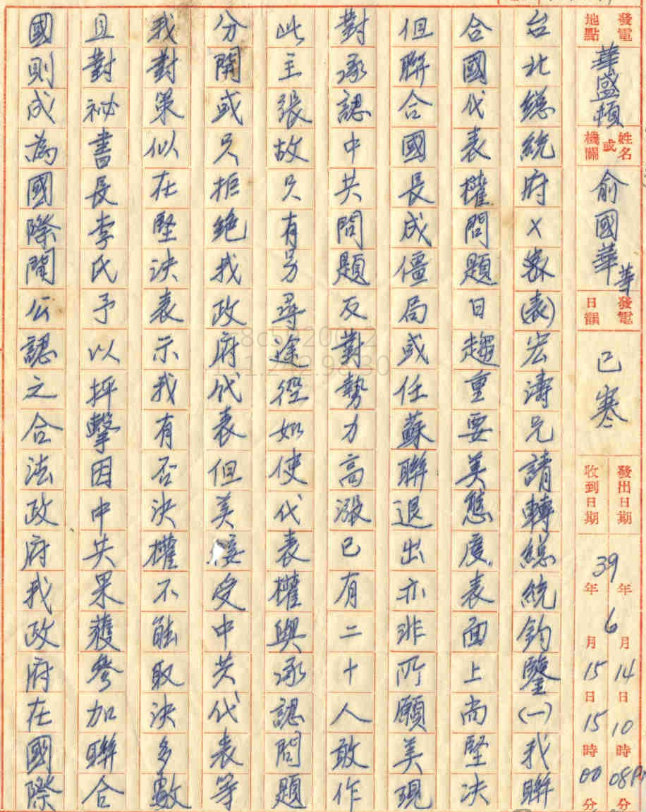 發電地點 華盛頓 姓名或機關 俞國華 華 發電日韻 已寒 發出日期 39年6月14日10時08分PM 收到日期 15日15時00分
台北總統府X密(表)宏濤兄請轉總統鈞鑒(一)我聯
合國代表權問題日趨重要美態度表面上尚堅決
但聯合國長成僵局或任蘇聯退出亦非所願美現
對承認中共問題反對勢力高漲已有二十人敢作
此主張故只有另尋途徑如使代表權與承認問題
分開或只拒絕我政府代表但美受中共代表等
我對策似在堅決表示我有否決權不能取決多數
且對祕書長李氏予以抨擊因中共果獲參加聯合
國則成為國際間公認之合法政府我政府在國際